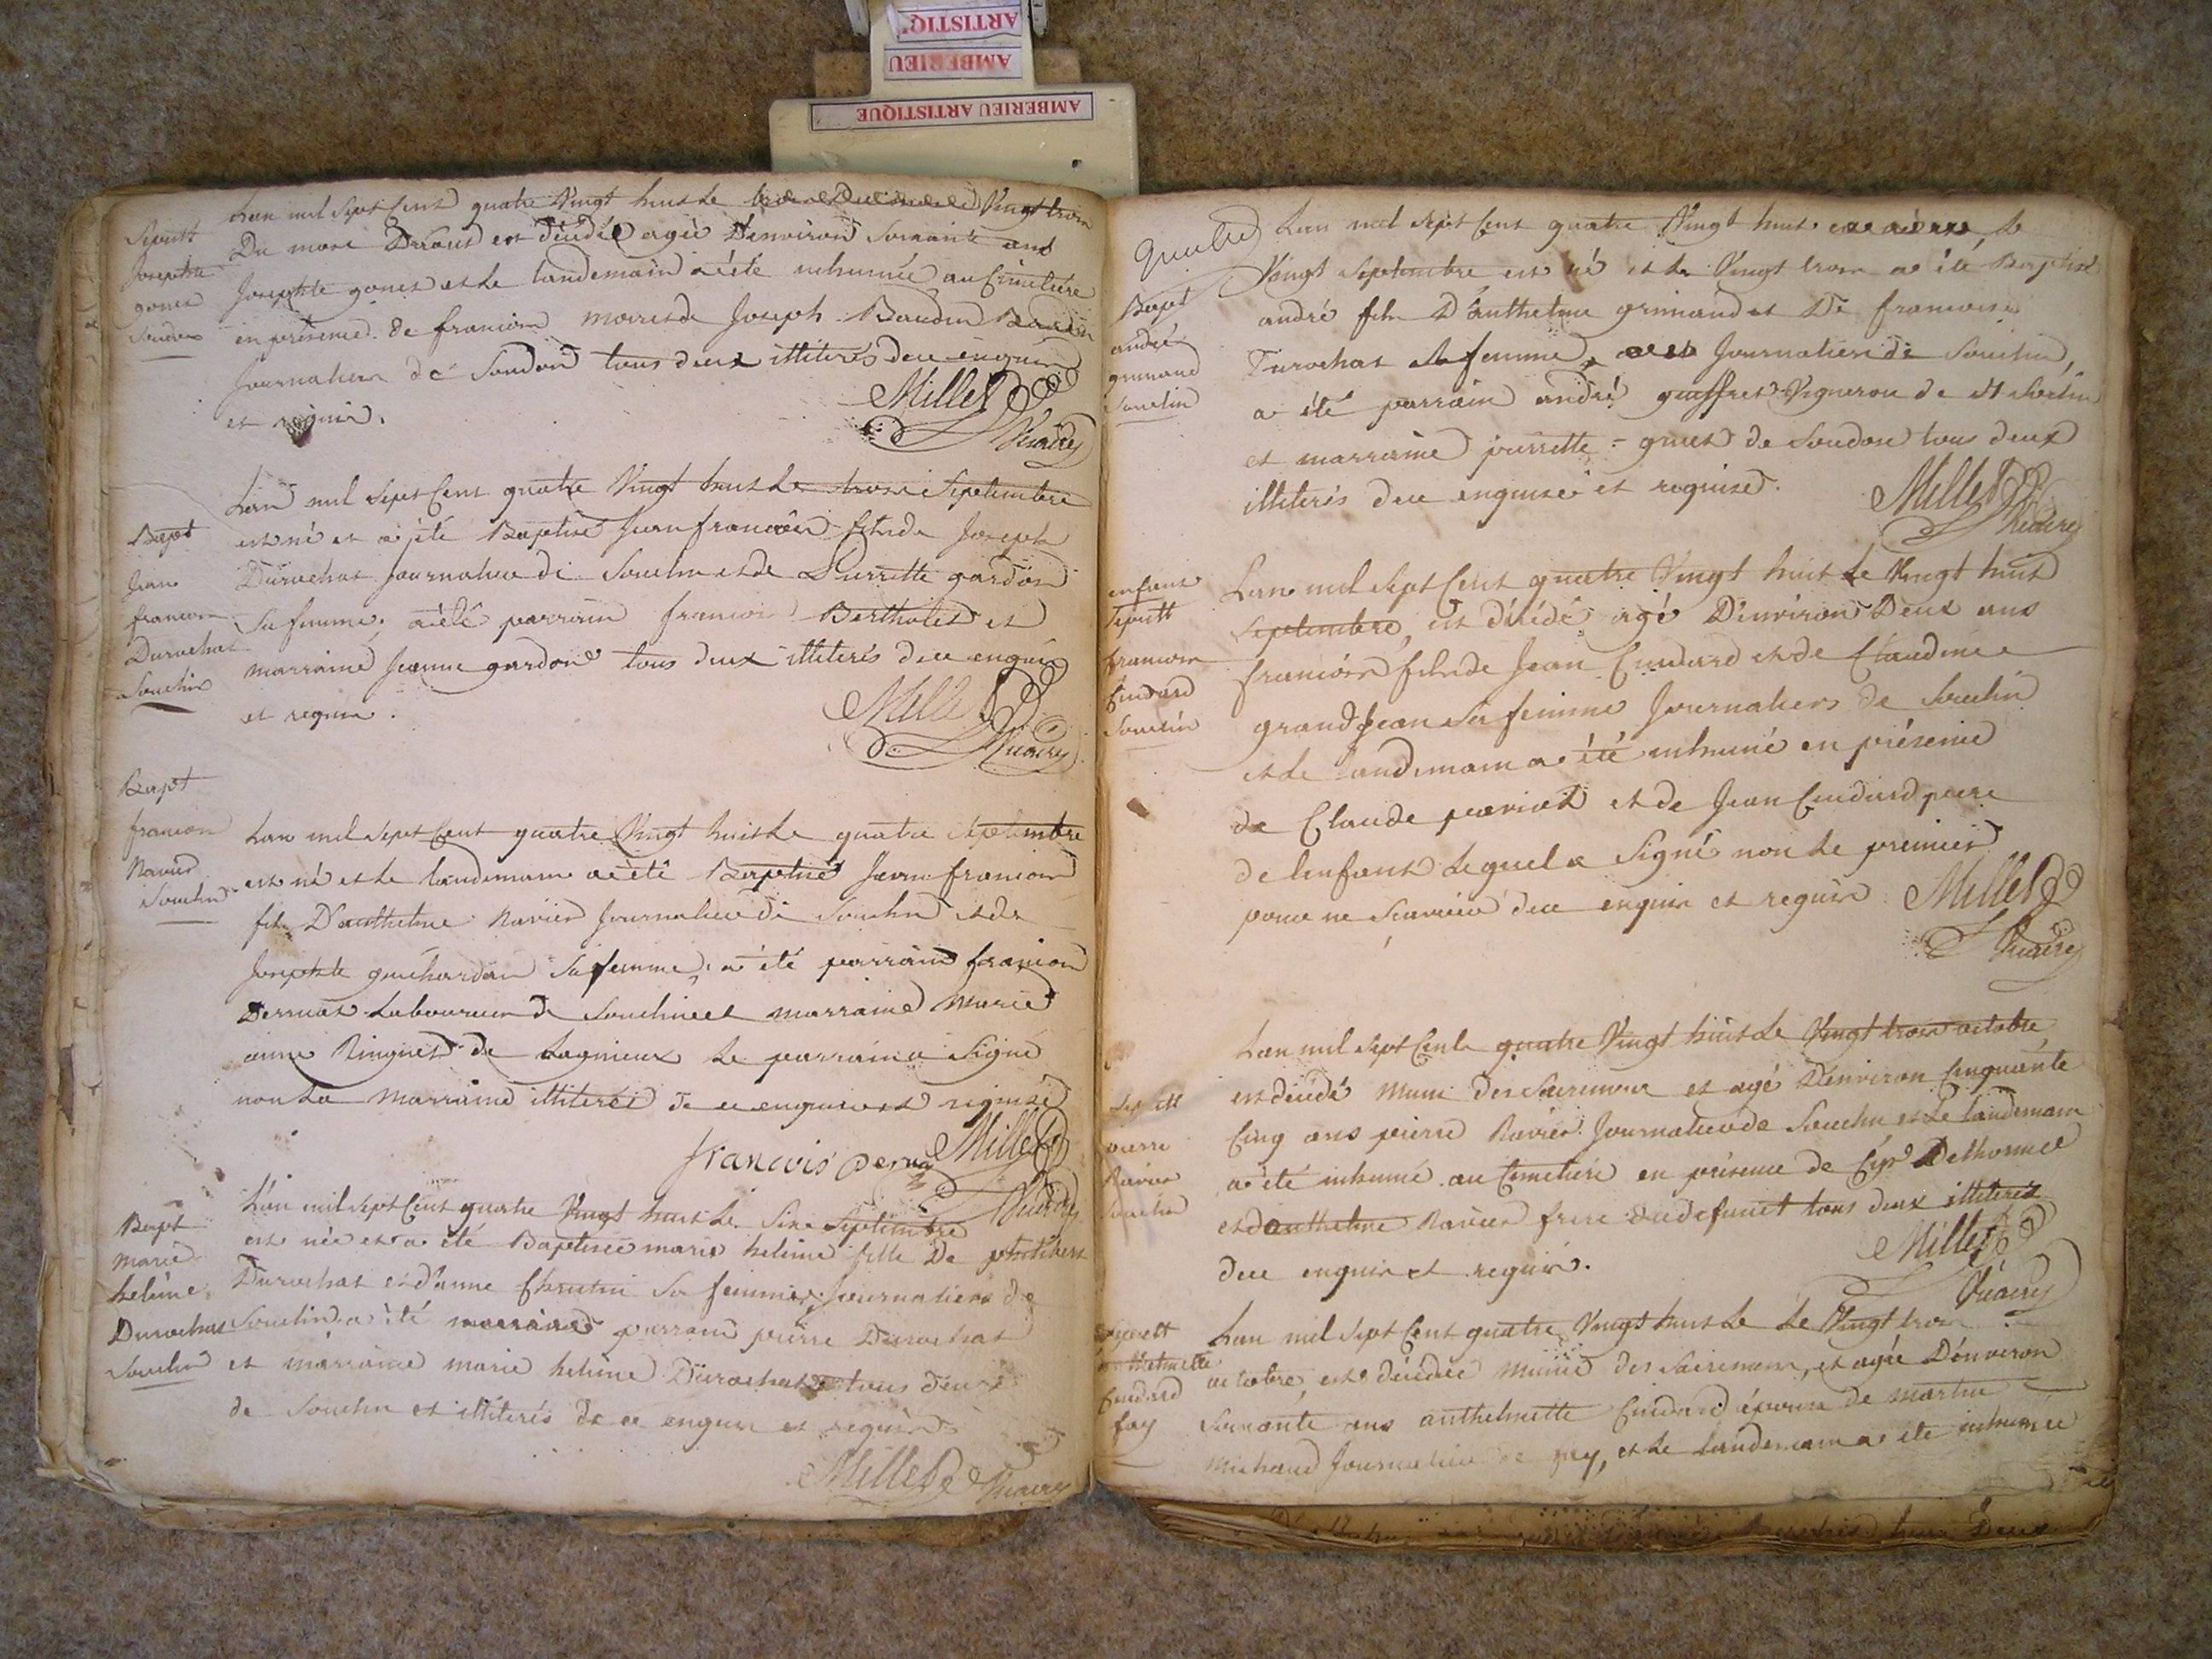 ARTISTIQ
AMBERIEU
AMBERIEU ARTISTIQUE
Sepult
Josephte
gonet
Soudon
Lan mil sept Cent quatre Vingt huit le Vingt trois
Du mois est décédée agée D'environ Soixante ans
Josephte gonet et le landemain a été inhumée au Cimetière
en présence de francois moiret de Joseph Baudin
Journaliers de Soudon tous deux illiterés de ce enquis
et requis.
Millet
Vicaire
Bapt
Jean
francois
Durochat
Souclin
Lan mil sept Cent quatre Vingt huit Le trois Septembre
est né et a été Baptisé Jean francois fils de Joseph
Durochat Journalier de Souclin et de Pierrette gardon
Sa femme, a été parrain francois Bertholet et
marraine Jeanne gardon tous deux illiterés de ce enquis
et requis.
Millet
Vicaire
Bapt
francois
Ravier
Souclin
Lan mil sept Cent quatre Vingt huit Le quatre septembre
est né et le landemain a été Baptisé Jean francois
fils D'anthelme Ravier Journalier de Souclin et de
Josephte guichardan Sa femme, a été parrain francois
Derruat Laboureur de Souclin et marraine Marie
anne Ringuet de Lagnieux Le parrain a Signé
non La Marraine illiterée de ce enquise et requise
françois Derua
Millet
Vicaire
Bapt
marie
helène
Durochat
Souclin
Lan mil sept Cent quatre Vingt huit Le Six Septembre
est née et a été Baptisée marie helène fille De philibert
Durochat et d'anne Chrutin Sa femme, Journaliers de
Souclin a été parrain pierre Durochat
et marraine marie helène Durochat tous deux
de Souclin et illiterés de ce enquis et requis
Millet Vicaire
Quatre
Bapt
andré
grimand
Souclin
Lan mil sept Cent quatre Vingt huit le
Vingt septembre est né et le Vingt trois a été Baptisé
andré fils D'anthelme grimand et De francoise
Durochat Sa femme, Journaliers de Souclin,
a été parrain andré guiffret Vigneron de St
et marraine pierrette gruet de Soudon tous deux
illiterés de ce enquise et requise.
Millet
Vicaire
enfant
Sepult
francois
Cuidard
Souclin
Lan mil sept Cent quatre Vingt huit Le Vingt huit
septembre, est décédé agé D'environ Deux ans
francois fils de Jean Cuidard et de Claudine
grandJean Sa femme Journaliers de Souclin
et le landemain a été inhumé en présence
de Claude et de Jean Cuidard pere
de lenfant Lequel a Signé non Le premier
pour ne Scavoir de ce enquis et requis
Millet
Vicaire
Sepult
pierre
Ravier
Souclin
Lan mil sept Cent quatre Vingt huit Le Vingt trois octobre
est décédé muni des Sacremens et agé D'environ Cinquante
Cinq ans pierre Ravier Journalier de Souclin et Le landemain
a été inhumé au Cimetière en présence de Cip Delhomme
et d'anthelme Ravier frere du defunct tous deux illiterés
de ce enquis et requis.
Millet
Vicaire
Sepult
anthelmette
Cuidard
fay
Lan mil sept Cent quatre Vingt huit Le Le Vingt trois
octobre, est décédée munie des Sacremens, et agée D'environ
Soixante ans anthelmette Cuidard épouse de martin
michaud Journalier de fay, et le landemain a été inhumée